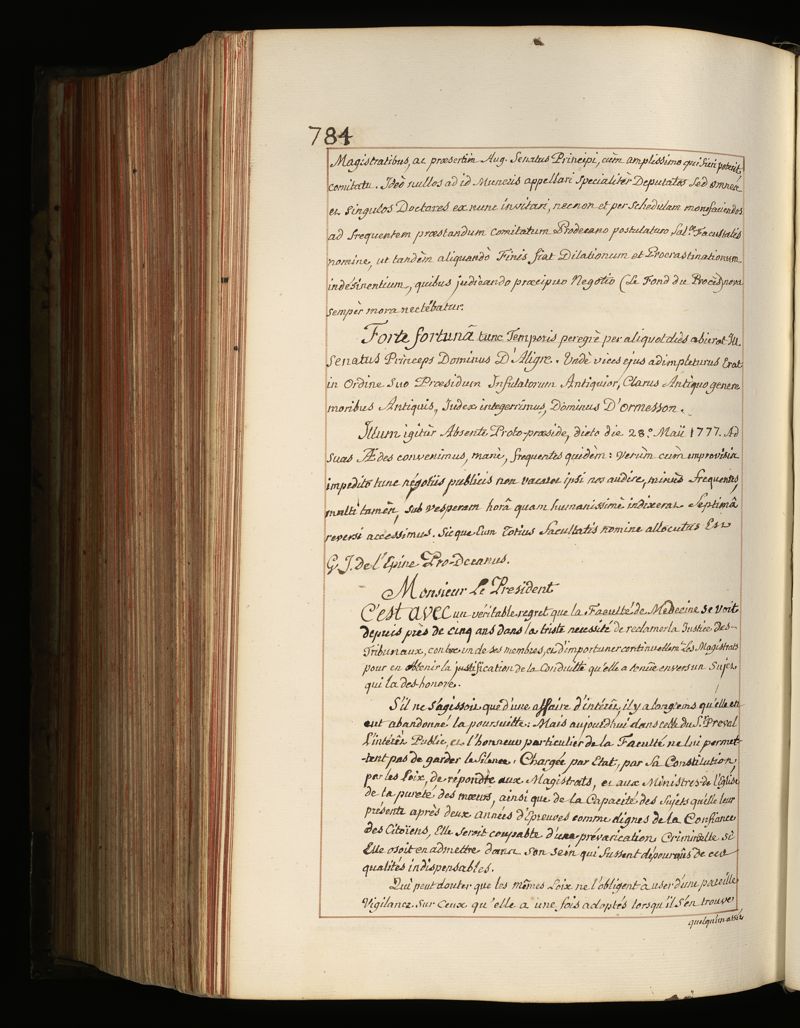 784
Magistratibus, ac præsertim Aug. Senatus Principi, cùm amplissimo qui fieri poterit
comitatu. Ideò nullos ad id Muneris appellari specialitèr Deputatos Sed omnes
et singulos Doctores ex nunc invitari, necnon et per Schedulam monefaciendos
ad frequentem præstandum comitatum Prodecano postulaturo Sal. Facultatis
nomine, ut tandèm aliquandò Finis fiat Dilationum et Procrastinationum
indésinentium, quibus judicando præcipuo Negotio (Le Fond du Procès) nova
sempèr mora nectebatur.
Forte fortunâ tunc Temporis peregrè per aliquot dies abierat Ill.
Senatus Princeps Dominus D'Aligre. Undè vices ejus adimpleturus Erat
in Ordine Suo Præsidum Infulatorum Antiquior, Clarus Antiquo genere
moribus Antiquis, Judex integerrimus, Dominus D'ormesson.
Illum igitùr Absente Proto-præside, dicto die 28.º Maii 1777. Ad
suas Ædes convenimus, manè, frequentes quidèm: Verùm cùm improvisis
impeditô tunc négotiis publicis non vacaret ipsi nos audire, minùs frequentes,
multi tamèn, sub vesperam horâ quam humanissimè indixerat Septimâ
reversi accessimus. Sicque Eum Totius Facultatis nomine allocutus Est
G. J. de l'Epine Pro-Dceanus.
Monsieur Le President
C'est avec un véritable regret que la Faculté de Medecine se voit
depuis près de cinq ans dans la triste necessité de reclamer la Justice des
Tribunaux, contre un de ses membres, et d'importuner continuellemt. Les Magistrats
pour en obtenir la justification de la Conduitte qu'elle a tenüe envers un Sujet
qui la des-honore.
S'il ne s'agissoit que d'une affaire d'intérêt, il y a longtems qu'elle en
eut abandonné la poursuitte: Mais aujourd'hui dans celle du S. Preval
L'intérêt Public, et l'honneur particulier de la Faculté ne lui permet-
-tent pas de garder le Silence. Chargée par Etat, par sa Constitution,
par les Loix, de répondre aux Magistrats, et aux Ministres de l'Eglise
de la pureté des mœurs, ainsi que de la Capacité des Sujets qu'elle leur
présente après deux années d'Epreuves comme dignes de la Confiance
des Citoïens, Elle seroit coupable d'une prévarication Criminelle si
Elle osoit en admettre dans son sein qui fussent dépourvûs de ces
qualités indispensables.
Qui peut douter que les mêmes Loix ne l'obligent à user d'une pareille
Vigilance sur ceux qu'elle a une fois adoptés lorsqu'il s'en trouve